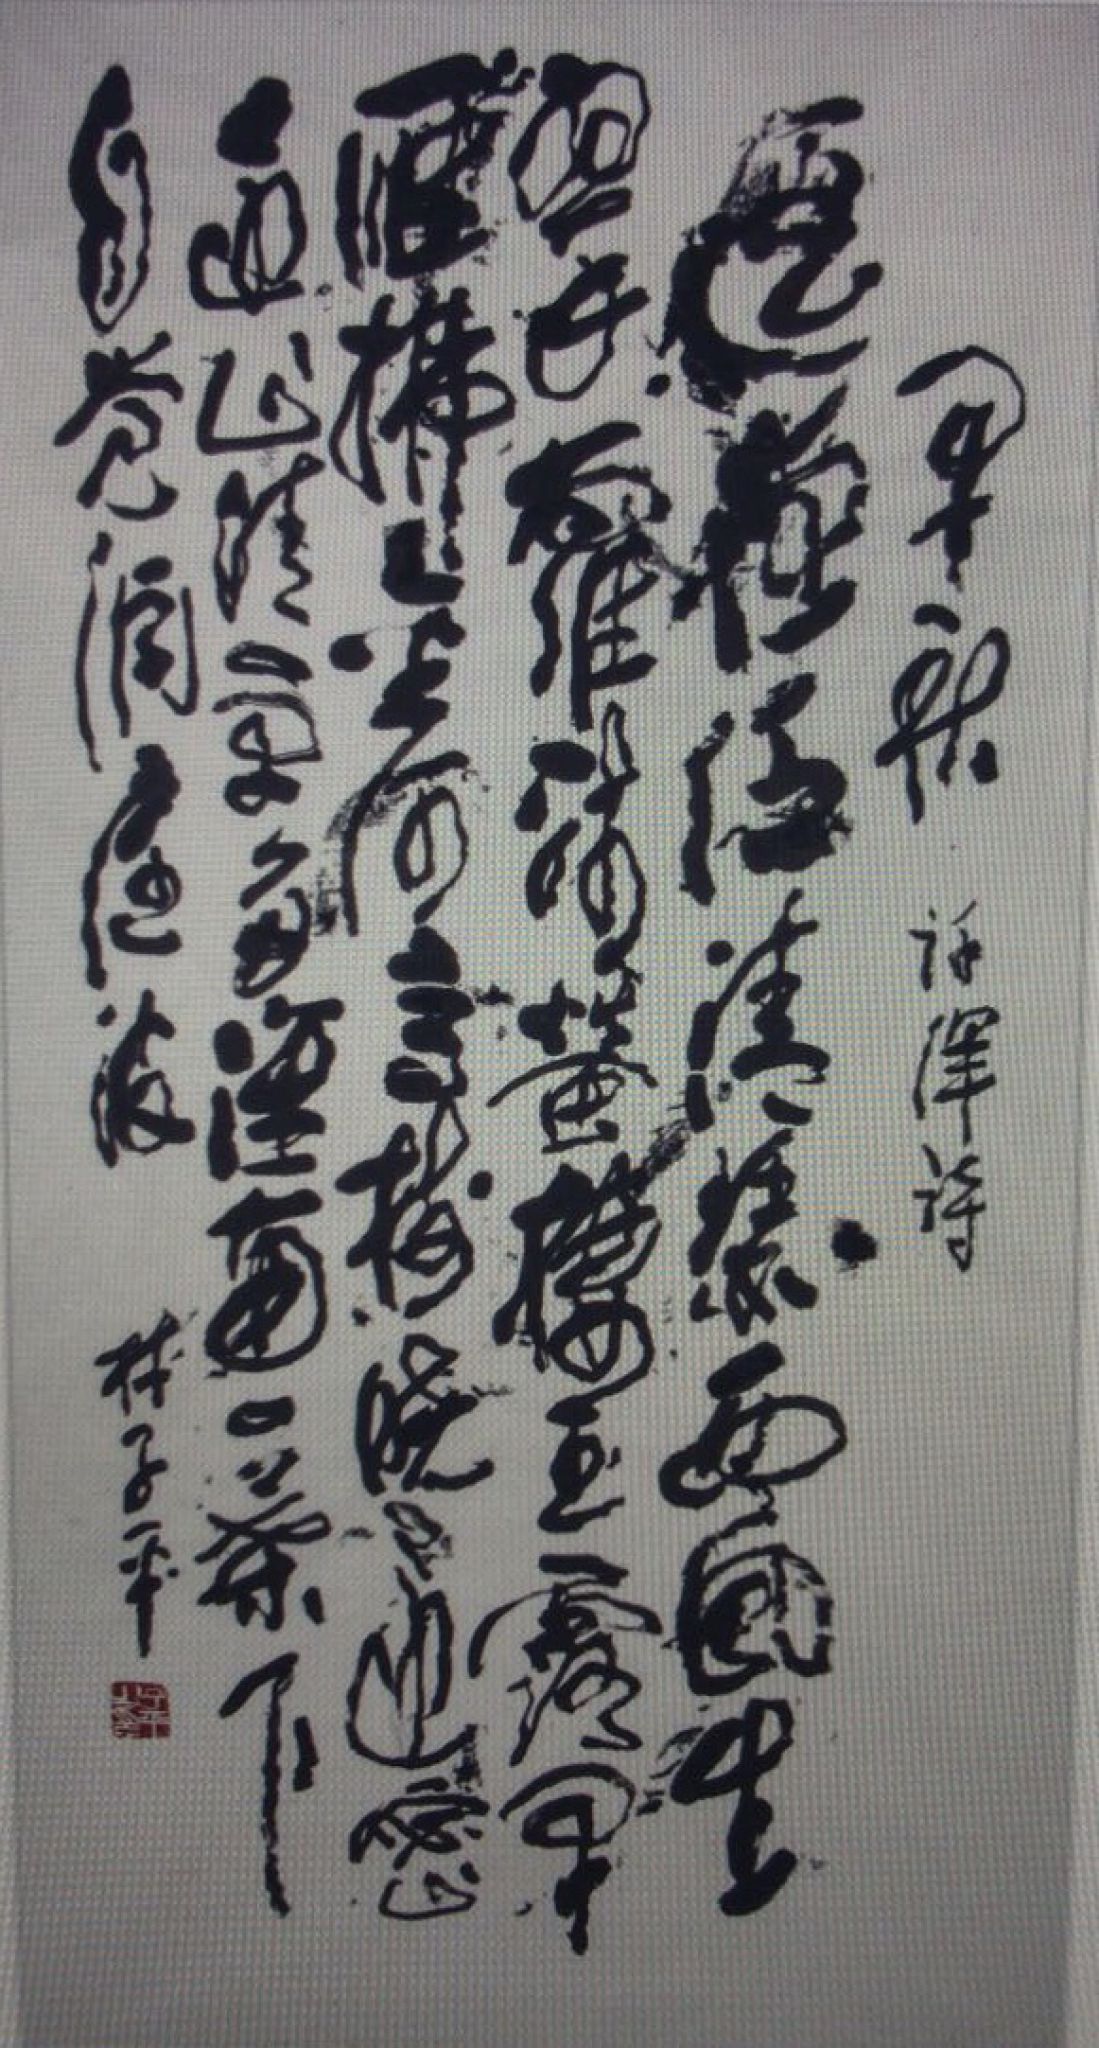 早秋 许渾诗
遥夜泛清瑟西風生
翠蘿残萤棲玉露早
雁拂金河高树曉還密
遠山晴更多淮南一葉下
自觉洞庭波
林子平